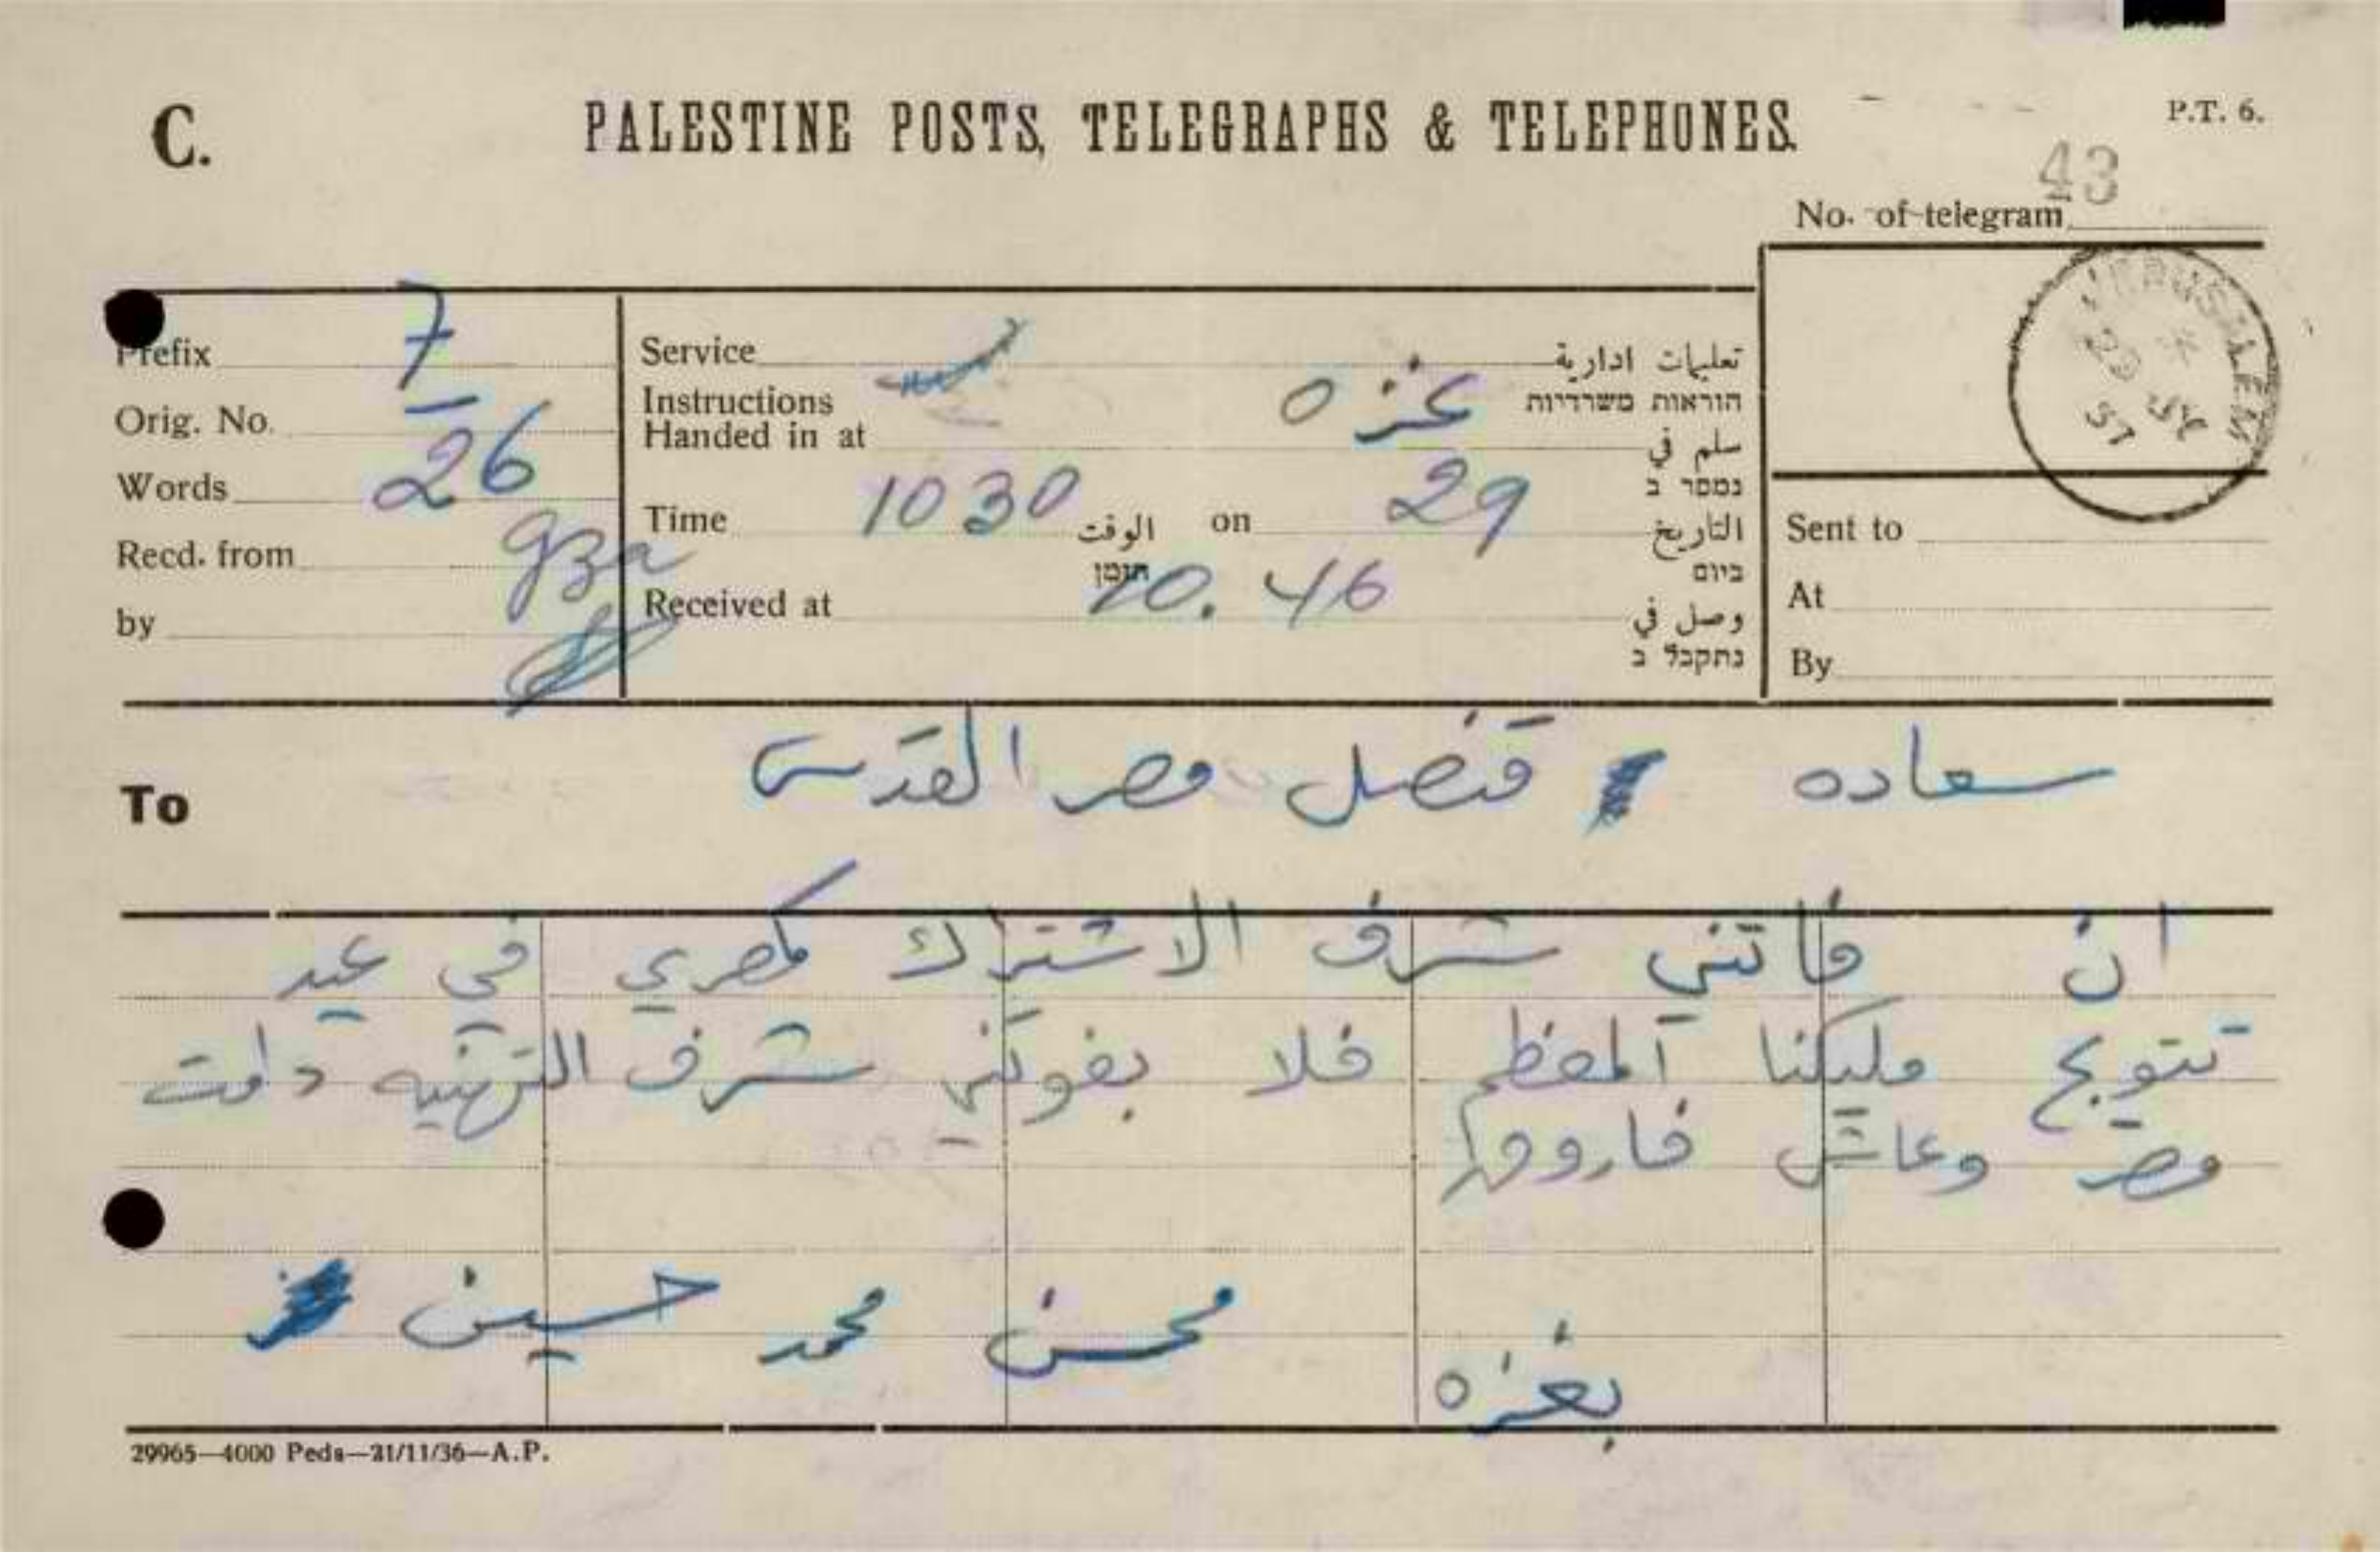 C.
PALESTINE POSTS, TELEGRAPHS & TELEPHONES.
P.T. 6.
43
No. of telegram
Prefix
7
Orig. No.
Words 26
Recd. from gza
by
Service تعليمات ادارية
Instructions הוראות משרדיות
Handed in at غزه سلم في
נמסר ב
Time 10 30 الوقت on 29 التاريخ
הזמן ביום
Received at 10.46 وصل في
נתקבל ב
JERUSALEM
29 JY
37
Sent to
At
By
To
سعاده قنصل مصر القدس
ان فاتني شرف الاشتراك كمصري في عيد
تتويج مليكنا المعظم فلا يفوتني شرف التهنيه دامت
مصر وعاش فاروقها
محسن محمد حسين
بغزه
29965—4000 Peds—21/11/36—A.P.